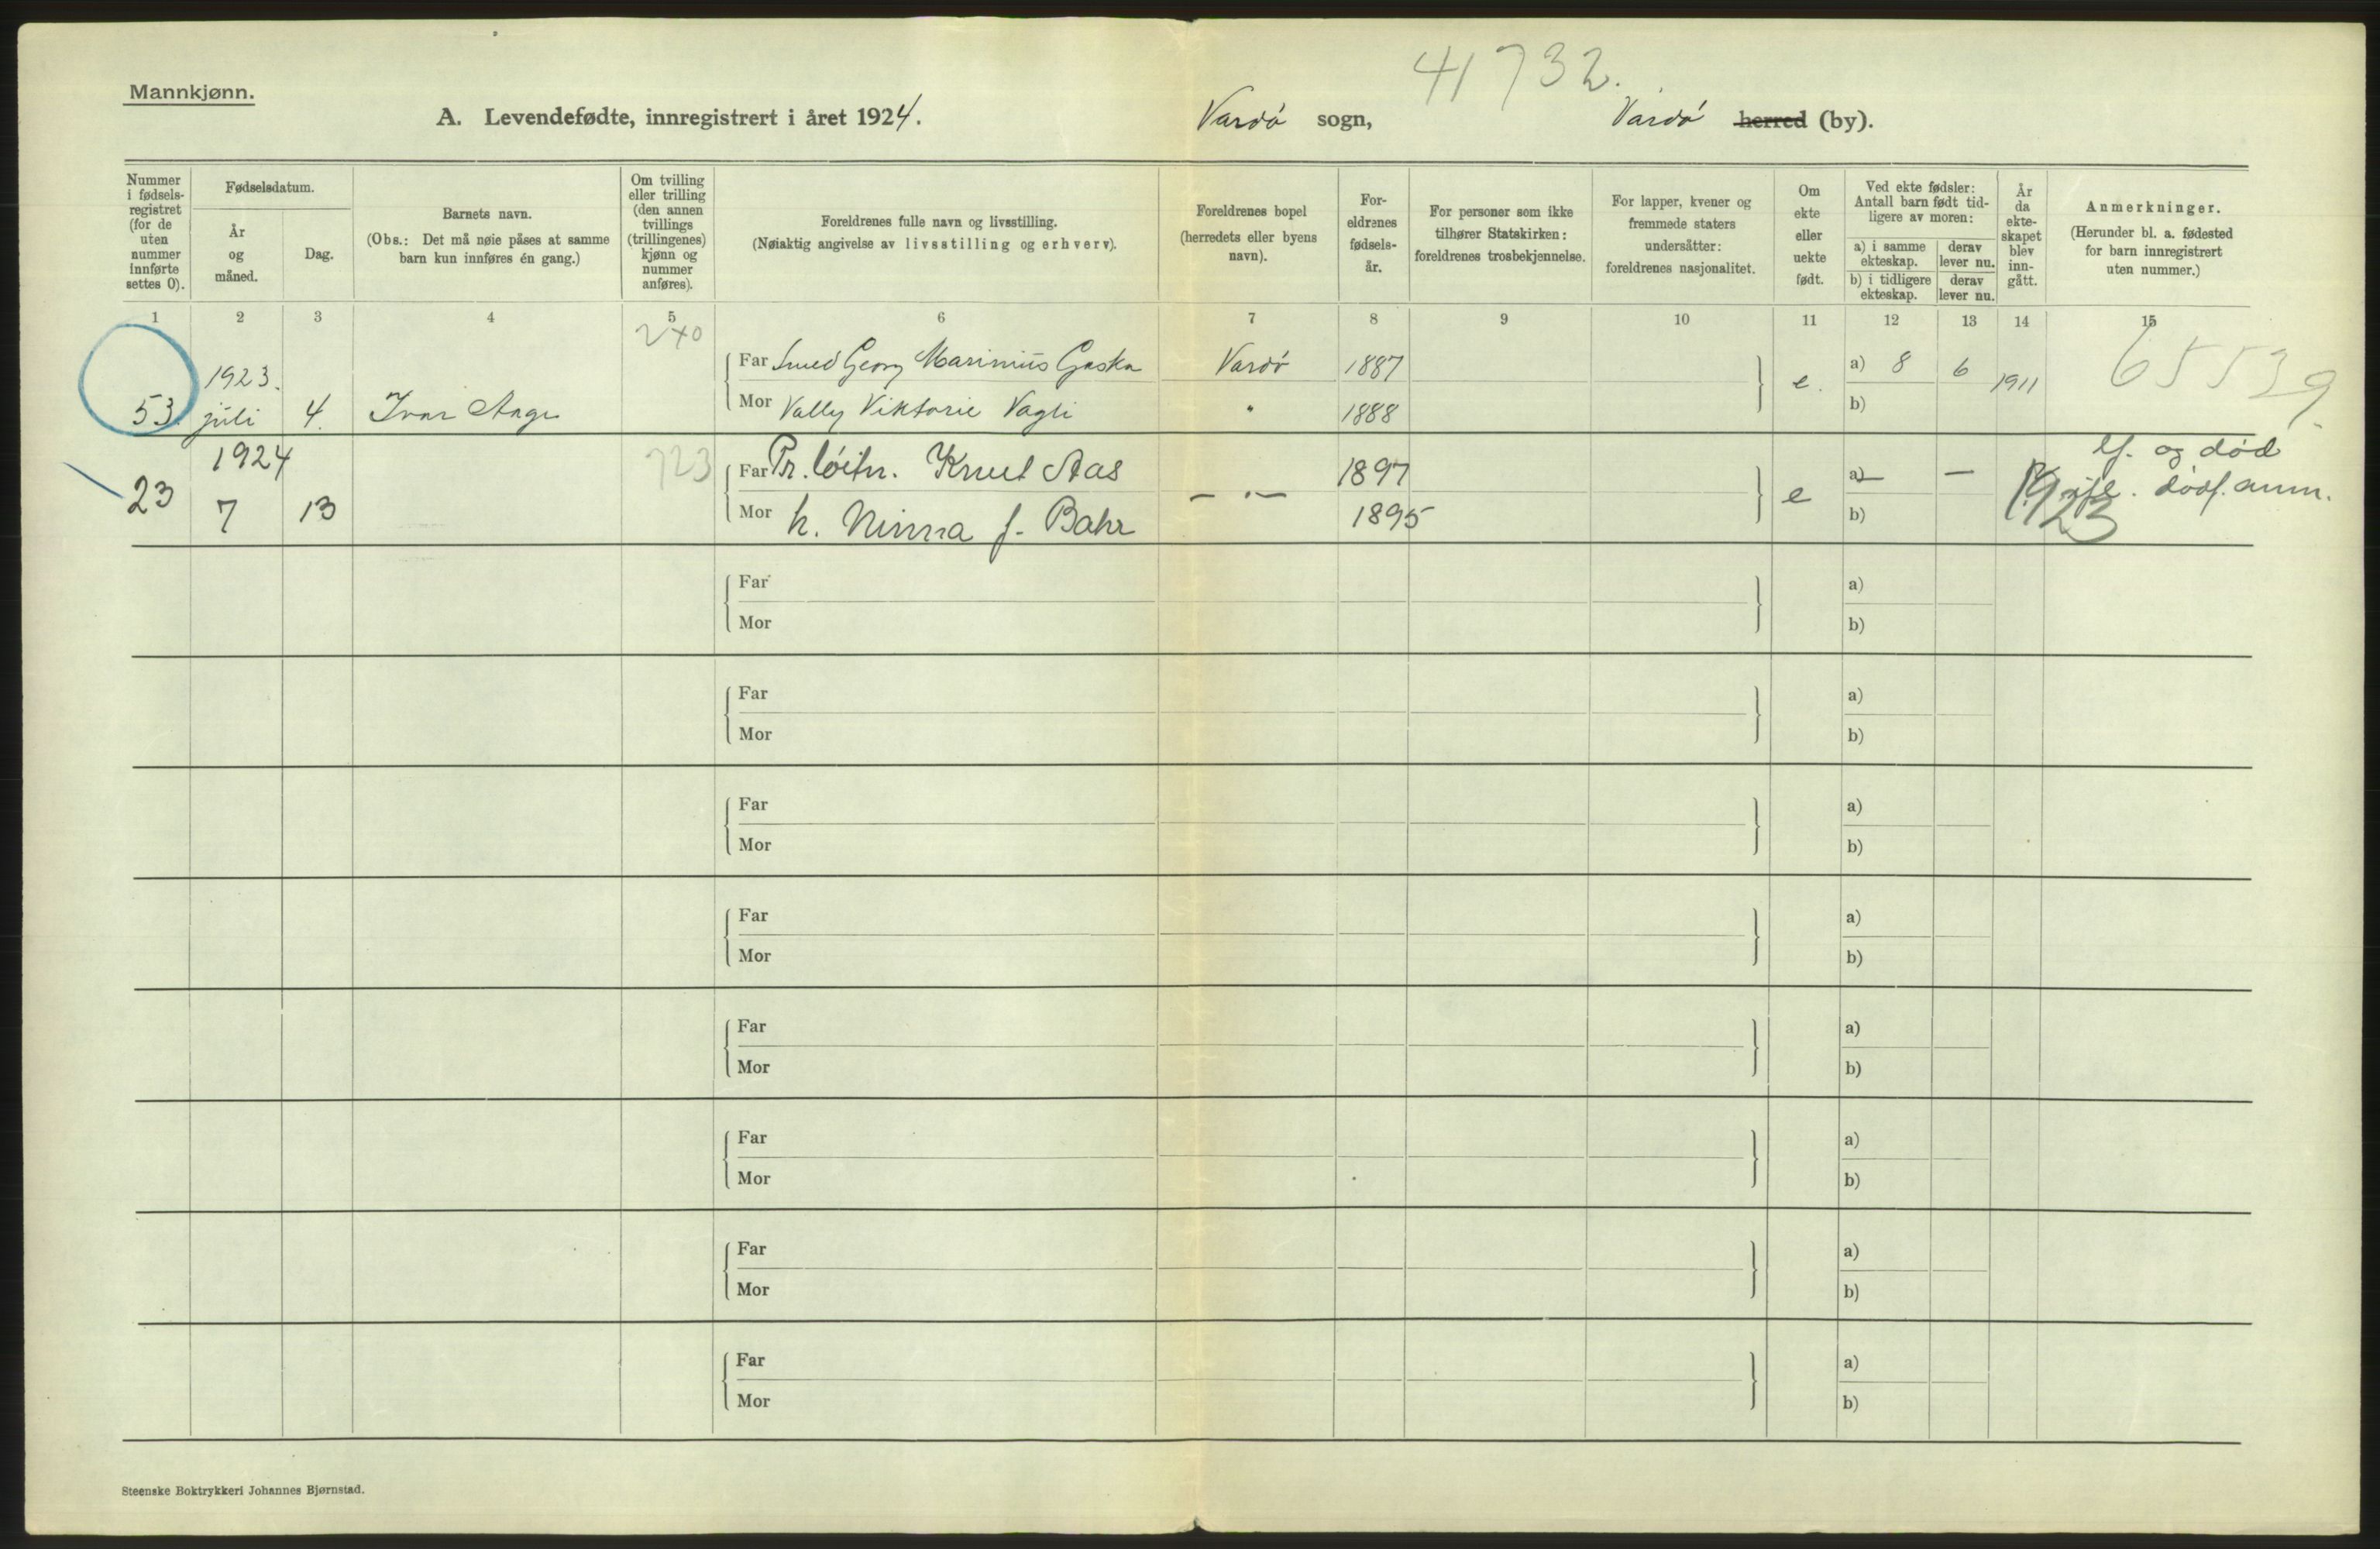 Mannkjønn.
41732.
A. Levendefødte, innregistrert i året 1924. Vardø sogn, Vardø herred (by).
Nummer i fødsels-registret (for de uten nummer innførte settes 0).
Fødselsdatum.
År og måned.
Dag.
Barnets navn.
(Obs.: Det må nøie påses at samme barn kun innføres én gang.)
Om tvilling eller trilling (den annen tvillings (trillingenes) kjønn og nummer anføres).
Foreldrenes fulle navn og livsstilling.
(Nøiaktig angivelse av livsstilling og erhverv).
Foreldrenes bopel (herredets eller byens navn).
For-eldrenes fødsels-år.
For personer som ikke tilhører Statskirken: foreldrenes trosbekjennelse.
For lapper, kvener og fremmede staters undersåtter: foreldrenes nasjonalitet.
Om ekte eller uekte født.
Ved ekte fødsler: Antall barn født tid-ligere av moren:
a) i samme ekteskap.
derav lever nu.
b) i tidligere ekteskap.
derav lever nu.
År da ekte-skapet blev inn-gått.
Anmerkninger.
(Herunder bl. a. fødested for barn innregistrert uten nummer.)
1 2 3 4 5 6 7 8 9 10 11 12 13 14 15
240
Far Smed Georg Marinius Gaska Vardø 1887 a) 8 6
1923. e. 1911 65539
53. juli 4. Ivar Aage Mor Vally Viktorie Vagli " 1888 b)
1924 723 Far Pr. løitn. Knut Aas 1897 a) — — lf. og død
23 7 13 — " — e 1923 dødf. anm.
Mor h. Ninna f. Bahr 1895 b)
Far a)
Mor b)
Far a)
Mor b)
Far a)
Mor b)
Far a)
Mor b)
Far a)
Mor b)
Far a)
Mor b)
Far a)
Mor b)
Far a)
Mor b)
Steenske Boktrykkeri Johannes Bjørnstad.